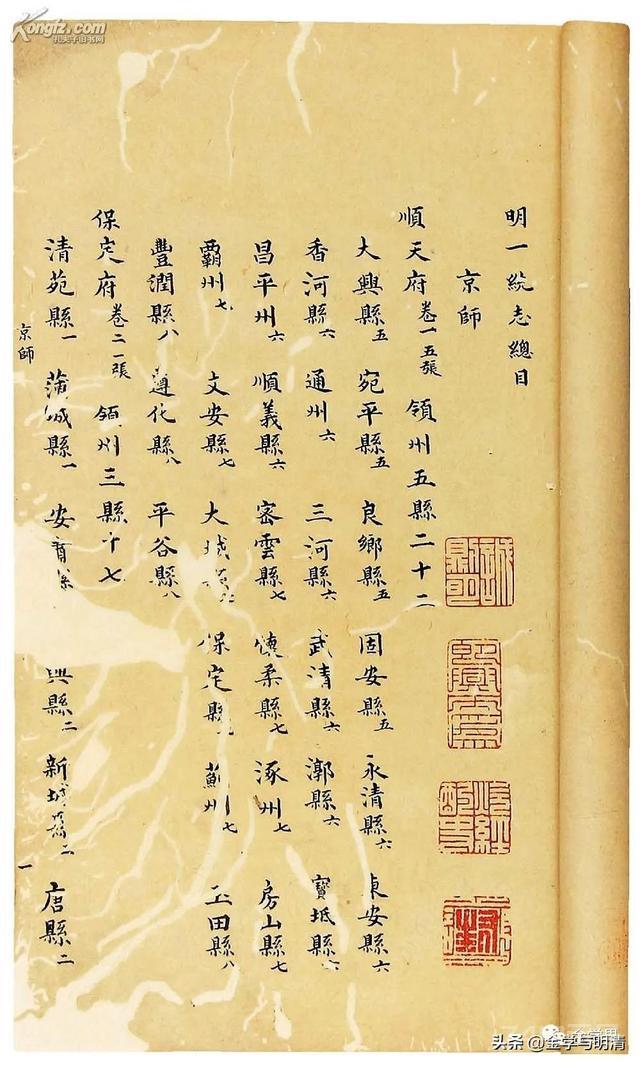 Kongfz.com
孔夫子旧书网
明一統志總目
京師
順天府 卷一 五張 領州五縣二十二
大興縣五 宛平縣五 良鄉縣五 固安縣五 永清縣六 東安縣六
香河縣六 通州六 三河縣六 武清縣六 漷縣六 寶坻縣六
昌平州六 順義縣六 密雲縣七 懷柔縣七 涿州七 房山縣七
霸州七 文安縣七 大城 保定縣 薊州七 玉田縣八
豐潤縣八 遵化縣八 平谷縣八
保定府 卷二 一張 領州三縣十七
清苑縣一 蒲城縣一 安肅 興縣二 新城縣二 唐縣二
京師
一
头条 @金学与明清